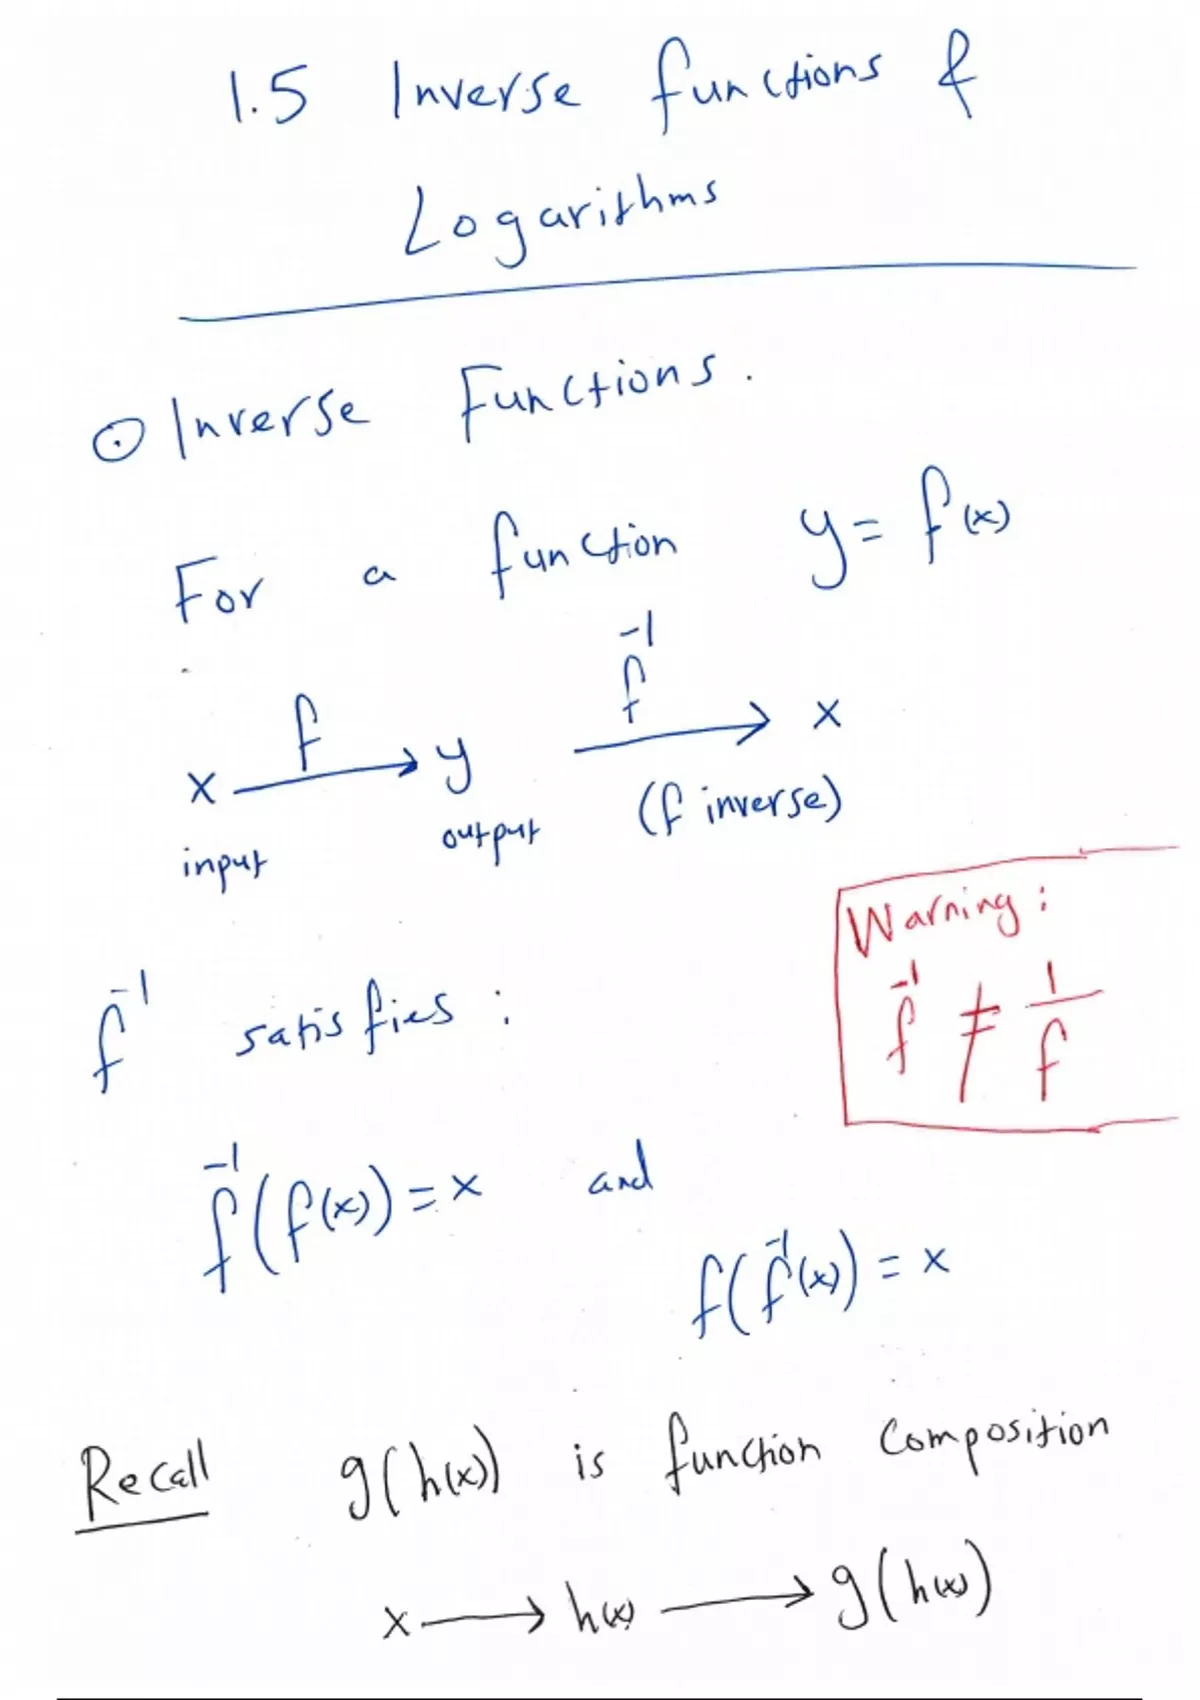 1.5 Inverse functions &
Logarithms
⊙ Inverse Functions.
For a function y = f(x)
x —f→ y —f⁻¹→ x
input output (f inverse)
Warning:
f⁻¹ ≠ 1/f
f⁻¹ satisfies:
f⁻¹(f(x)) = x and
f(f⁻¹(x)) = x
Recall g(h(x)) is function composition
x → h(x) → g(h(x))